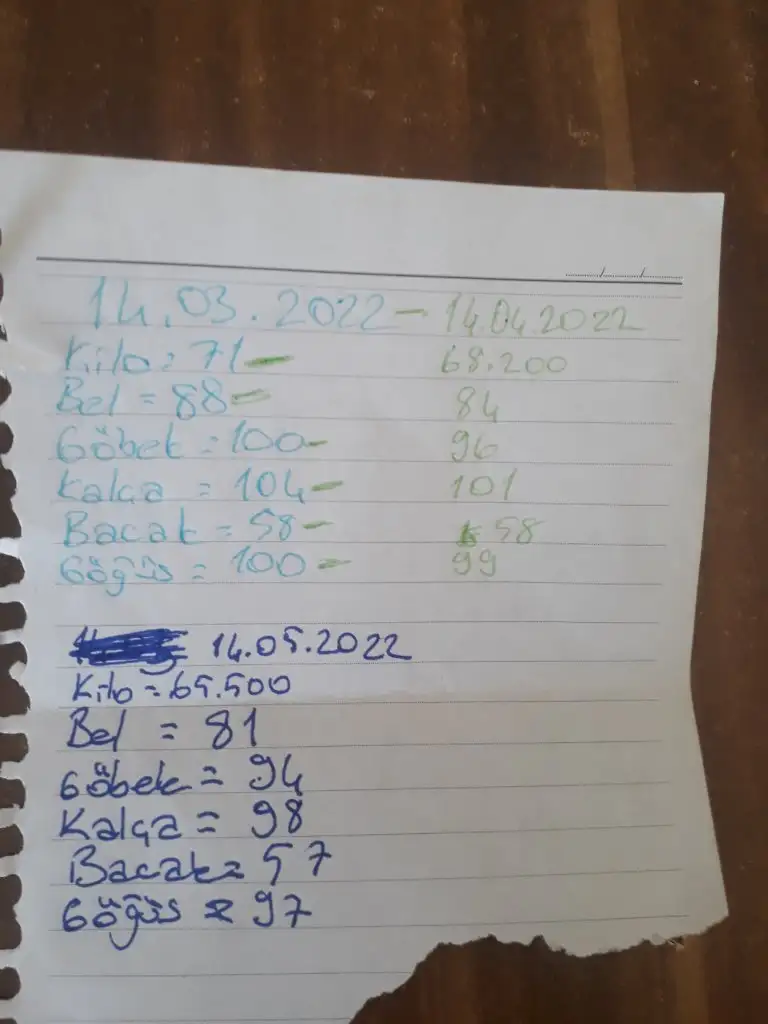 14.03.2022 - 14.04.2022
Kilo = 71 - 68.200
Bel = 88 - 84
Göbek = 100 - 96
Kalça = 104 - 101
Bacak = 58 - 58
Göğüs = 100 - 99
14.05.2022
Kilo = 65.500
Bel = 81
Göbek = 94
Kalça = 98
Bacak = 57
Göğüs = 97